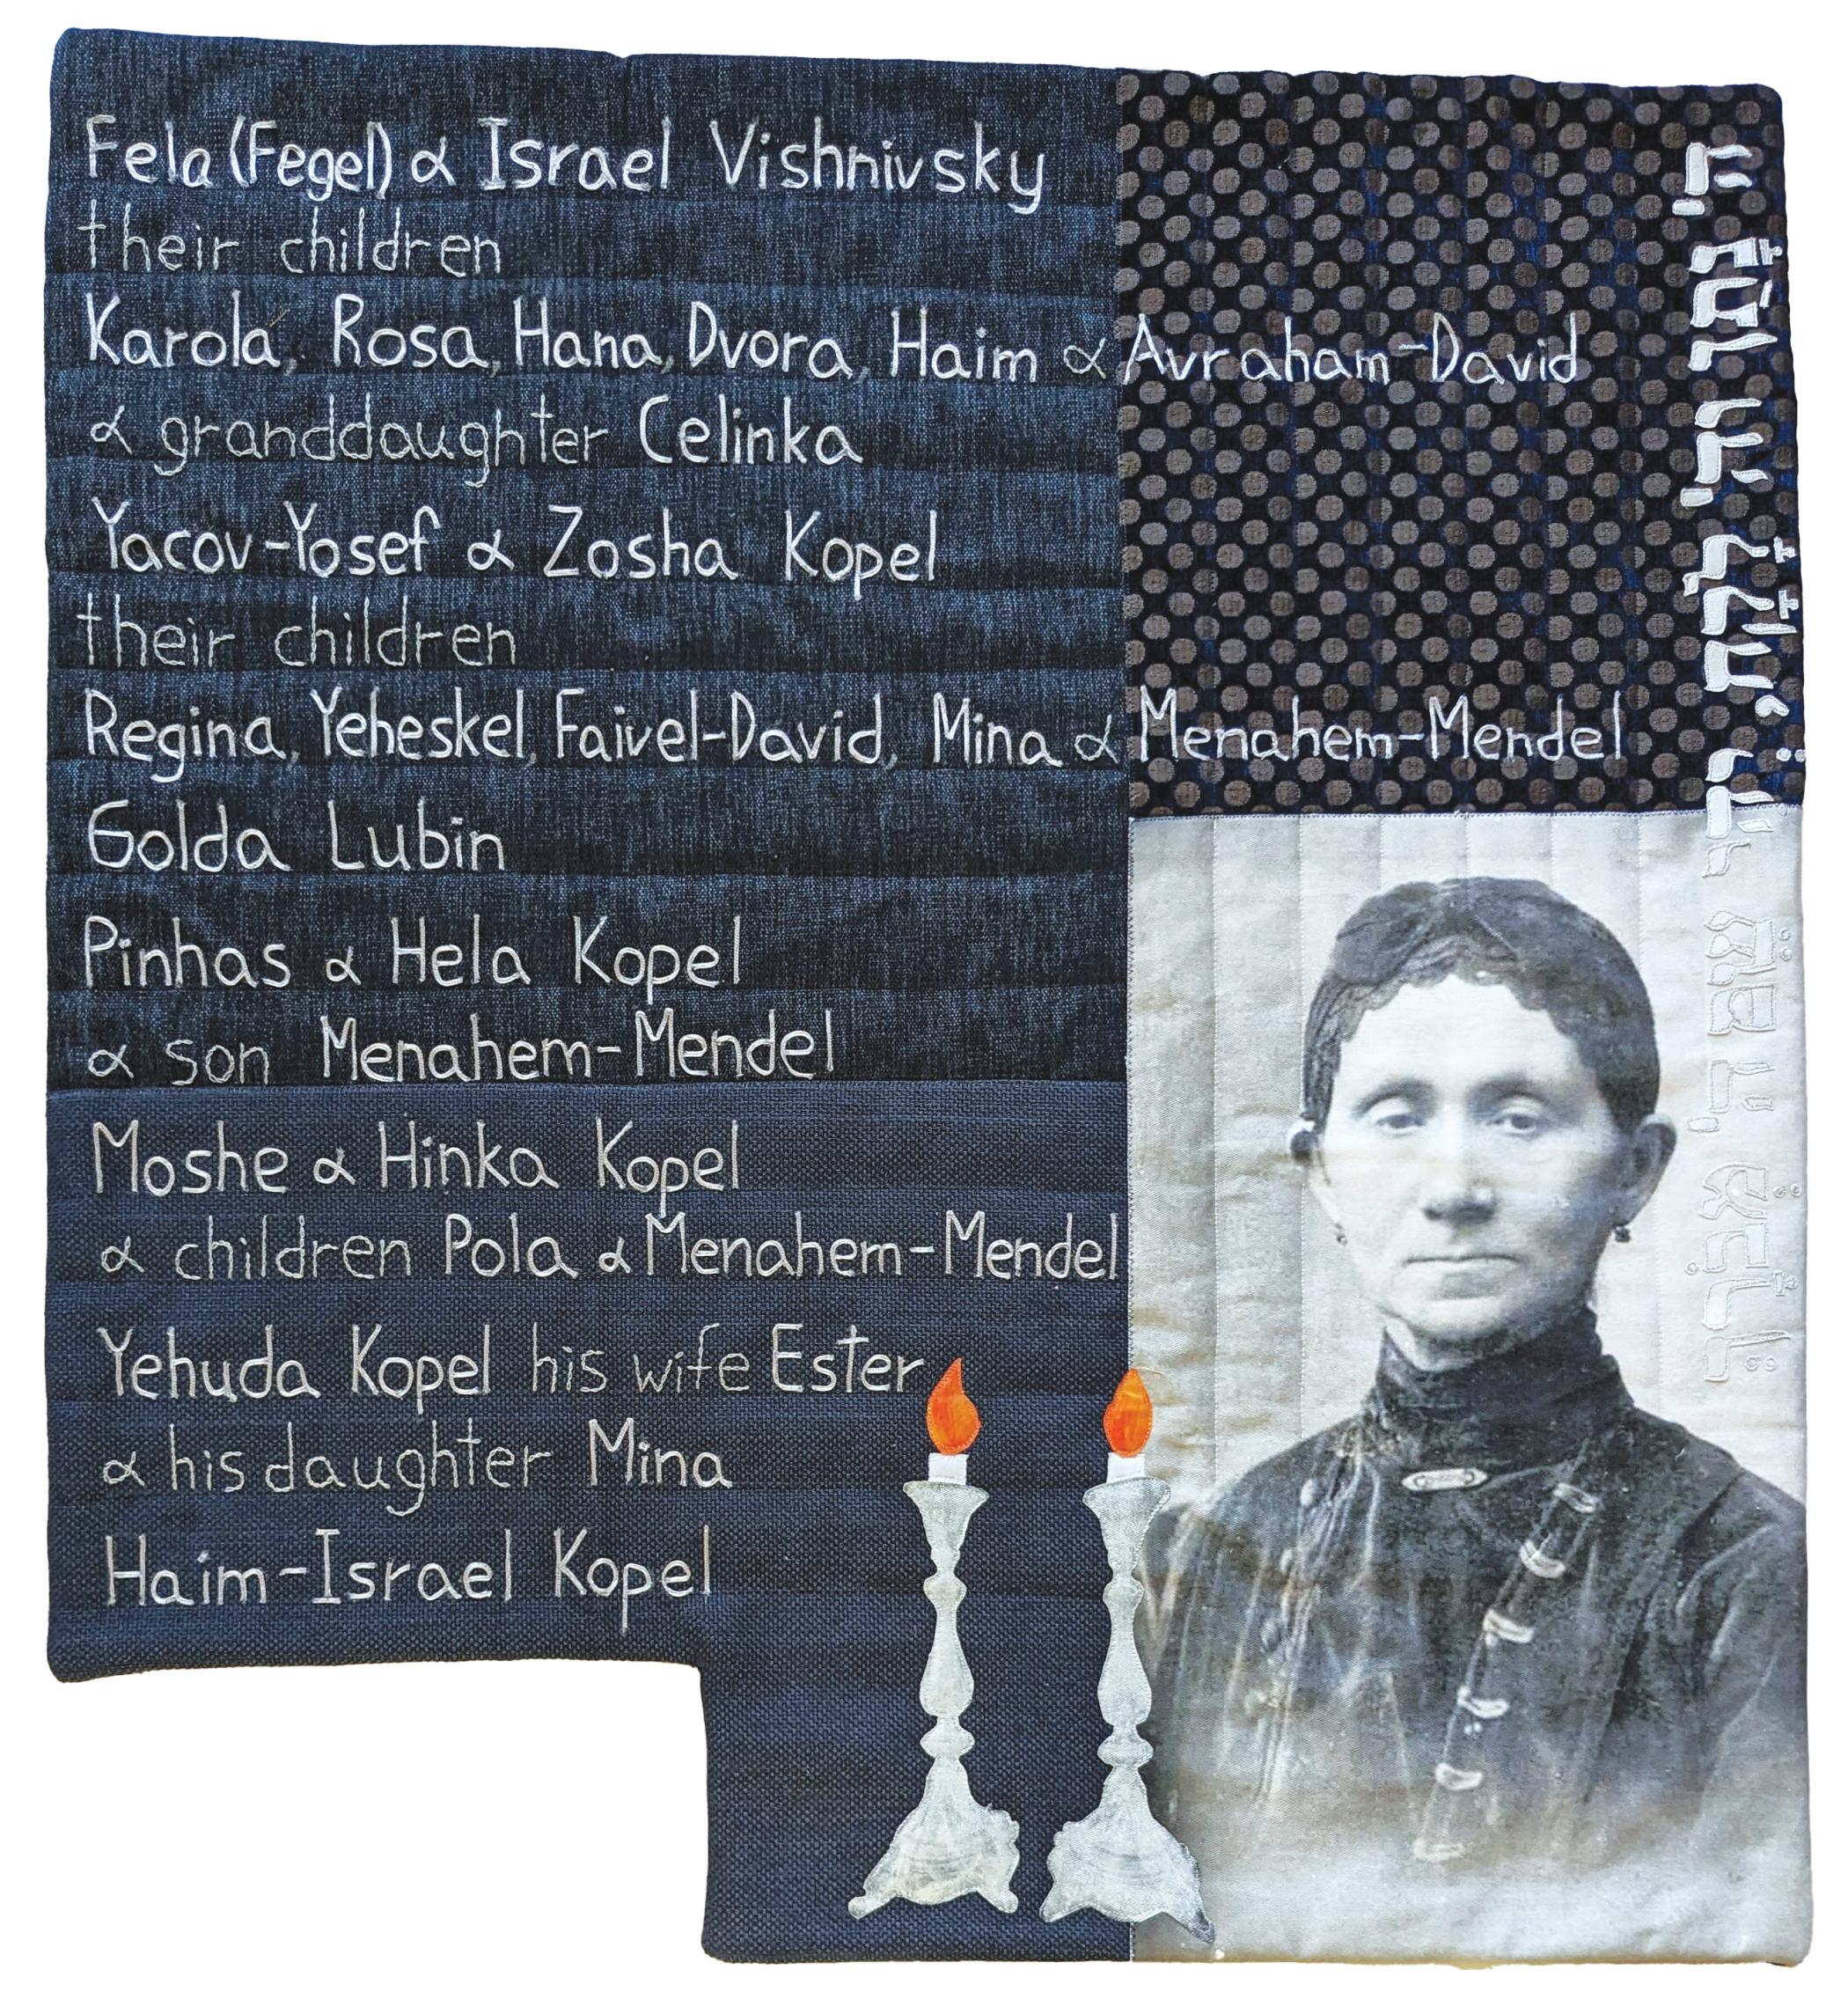 Fela (Fegel) & Israel Vishnivsky
their children
Karola, Rosa, Hana, Dvora, Haim & Avraham-David
& granddaughter Celinka
Yacov-Yosef & Zosha Kopel
their children
Regina, Yeheskel, Faivel-David, Mina & Menahem-Mendel
Golda Lubin
Pinhas & Hela Kopel
& son Menahem-Mendel
Moshe & Hinka Kopel
& children Pola & Menahem-Mendel
Yehuda Kopel his wife Ester
& his daughter Mina
Haim-Israel Kopel
יי נָתַן ויי לָקָח, יְהִי שֵׁם יי מְבֹרָךְ